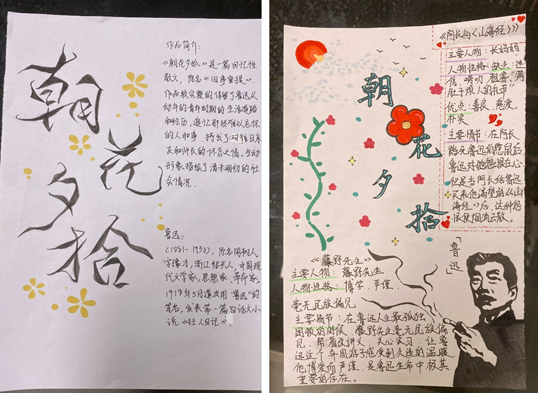 朝花夕拾
作品简介:
《朝花夕拾》是一篇回忆性
散文,原名《旧事重提》。
作品较完整的详细了鲁迅从
幼年到青年时期的生活道路
和经历,追忆那些难以忘怀
的人和事,抒发了对往日亲
友和师长的怀念之情,生动
形象描绘了清末明初的社
会情况。
鲁迅:
(1881-1936),原名周树人
字豫才,浙江绍兴人,中国现
代文学家,思想家,革命家。
1918年5月首次用"鲁迅"的
笔名,发表第一篇白话文小
说《狂人日记》
《阿长与《山海经》》
主要人物:长妈妈
人物性格:缺点:迷
信,唠叨,粗鲁"满
肚子烦人的礼节"
优点:善良,宽厚
朴实
主要情节:在阿长
踩死鲁迅的隐鼠后
鲁迅对她怀恨在心
但是当阿长给鲁迅
买来他渴望的《山
海经》后,这种怨
恨便烟消云散。
朝花夕拾
「鲁迅」
《藤野先生》
主要人物:藤野先生
人物性格:博学,严谨
毫无民族偏见
主要情节:在鲁迅人生最孤独
困顿的时候,藤野先生毫无民族偏
见,帮看改讲义,关心实习,让鲁
迅这个异国游子感受到久违的温暖
他博爱而严谨,是鲁迅生命中极其
重要的存在。